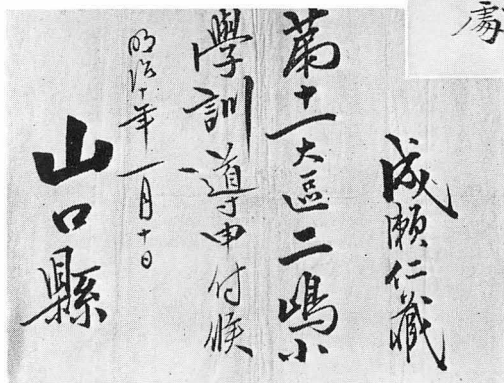 處
成瀬仁藏
第十一大區二嶋小
學訓導申付候
明治十年一月十日
山口縣